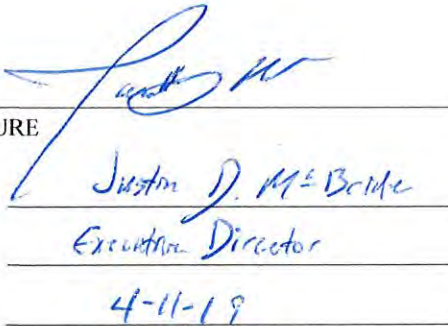 URE
Justin D. McBride
Executive Director
4-11-19